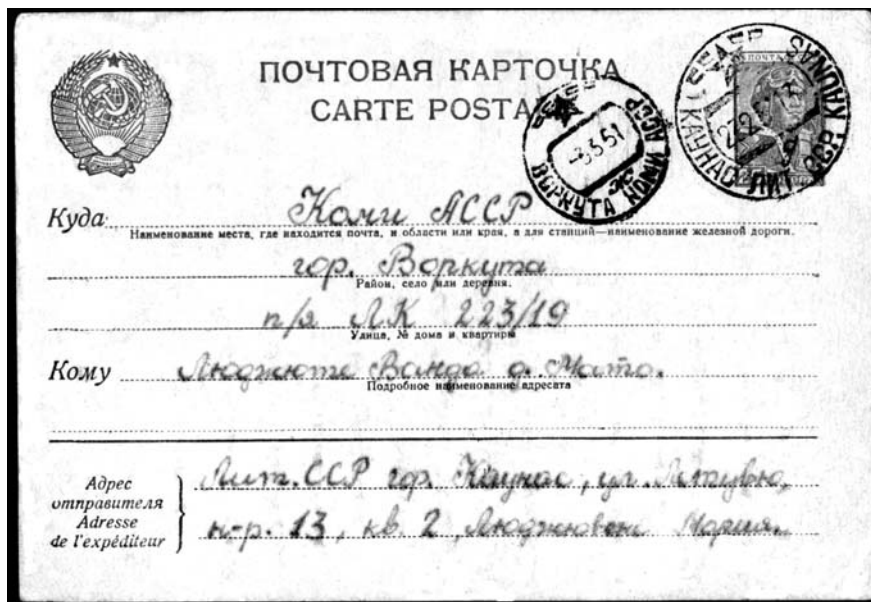 ПОЧТОВАЯ КАРТОЧКА
CARTE POSTA
ПОЧТА
КАУНАС ЛИТ ССР KAUNAS
-8351
ВОРКУТА КОМИ АССР
Куда Коми АССР
Наименование места, где находится почта, и области или края, а для станций—наименование железной дороги.
гор. Воркута
Район, село или деревня.
п/я ЛК 223/19
Улица, № дома и квартиры
Кому Люджюте Ванда д. Мато.
Подробное наименование адресата
Адрес
отправителя
Adresse
de l'expéditeur
Лит. ССР гор. Каунас, ул.
н-р. 13, кв. 2, Люджювене Мария.